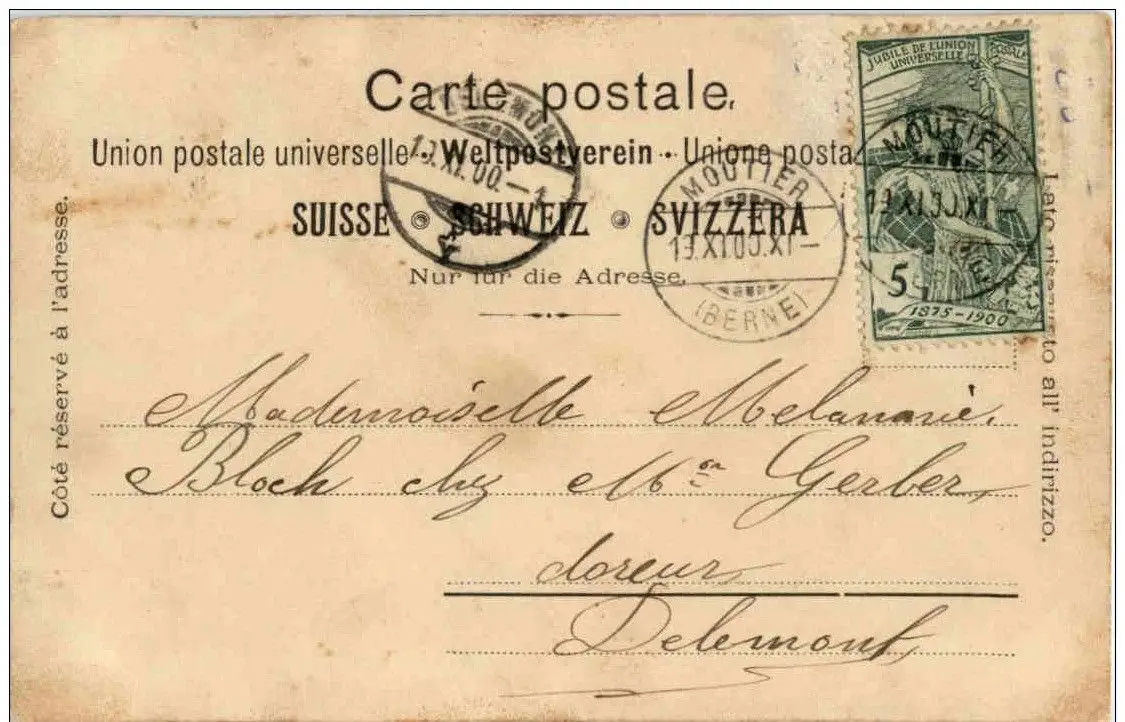 JUBILÉ DE L'UNION POSTALE
UNIVERSELLE
Carte postale.
Union postale universelle · Weltpostverein · Unione posta
SUISSE SCHWEIZ SVIZZERA
Nur für die Adresse.
MOUTIER
19.XI.00.XI-
(BERNE)
MOUTIER
19.XI.00.XI-
19.XI.00.-1
5
1875-1900
Côté réservé à l'adresse.
Lato all' indirizzo.
Mademoiselle Melananie.
Bloch chez Mr Gerber
doreur
Delemont